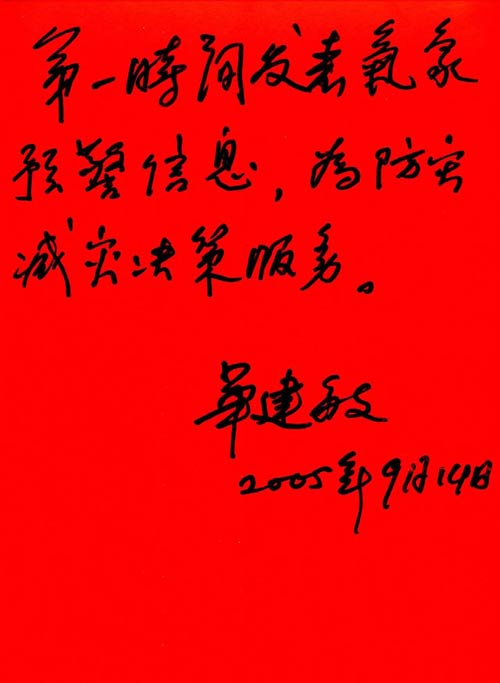 第一時间发表氣象
预警信息，為防灾
减灾决策服务。
華建敏
2005年9月14日